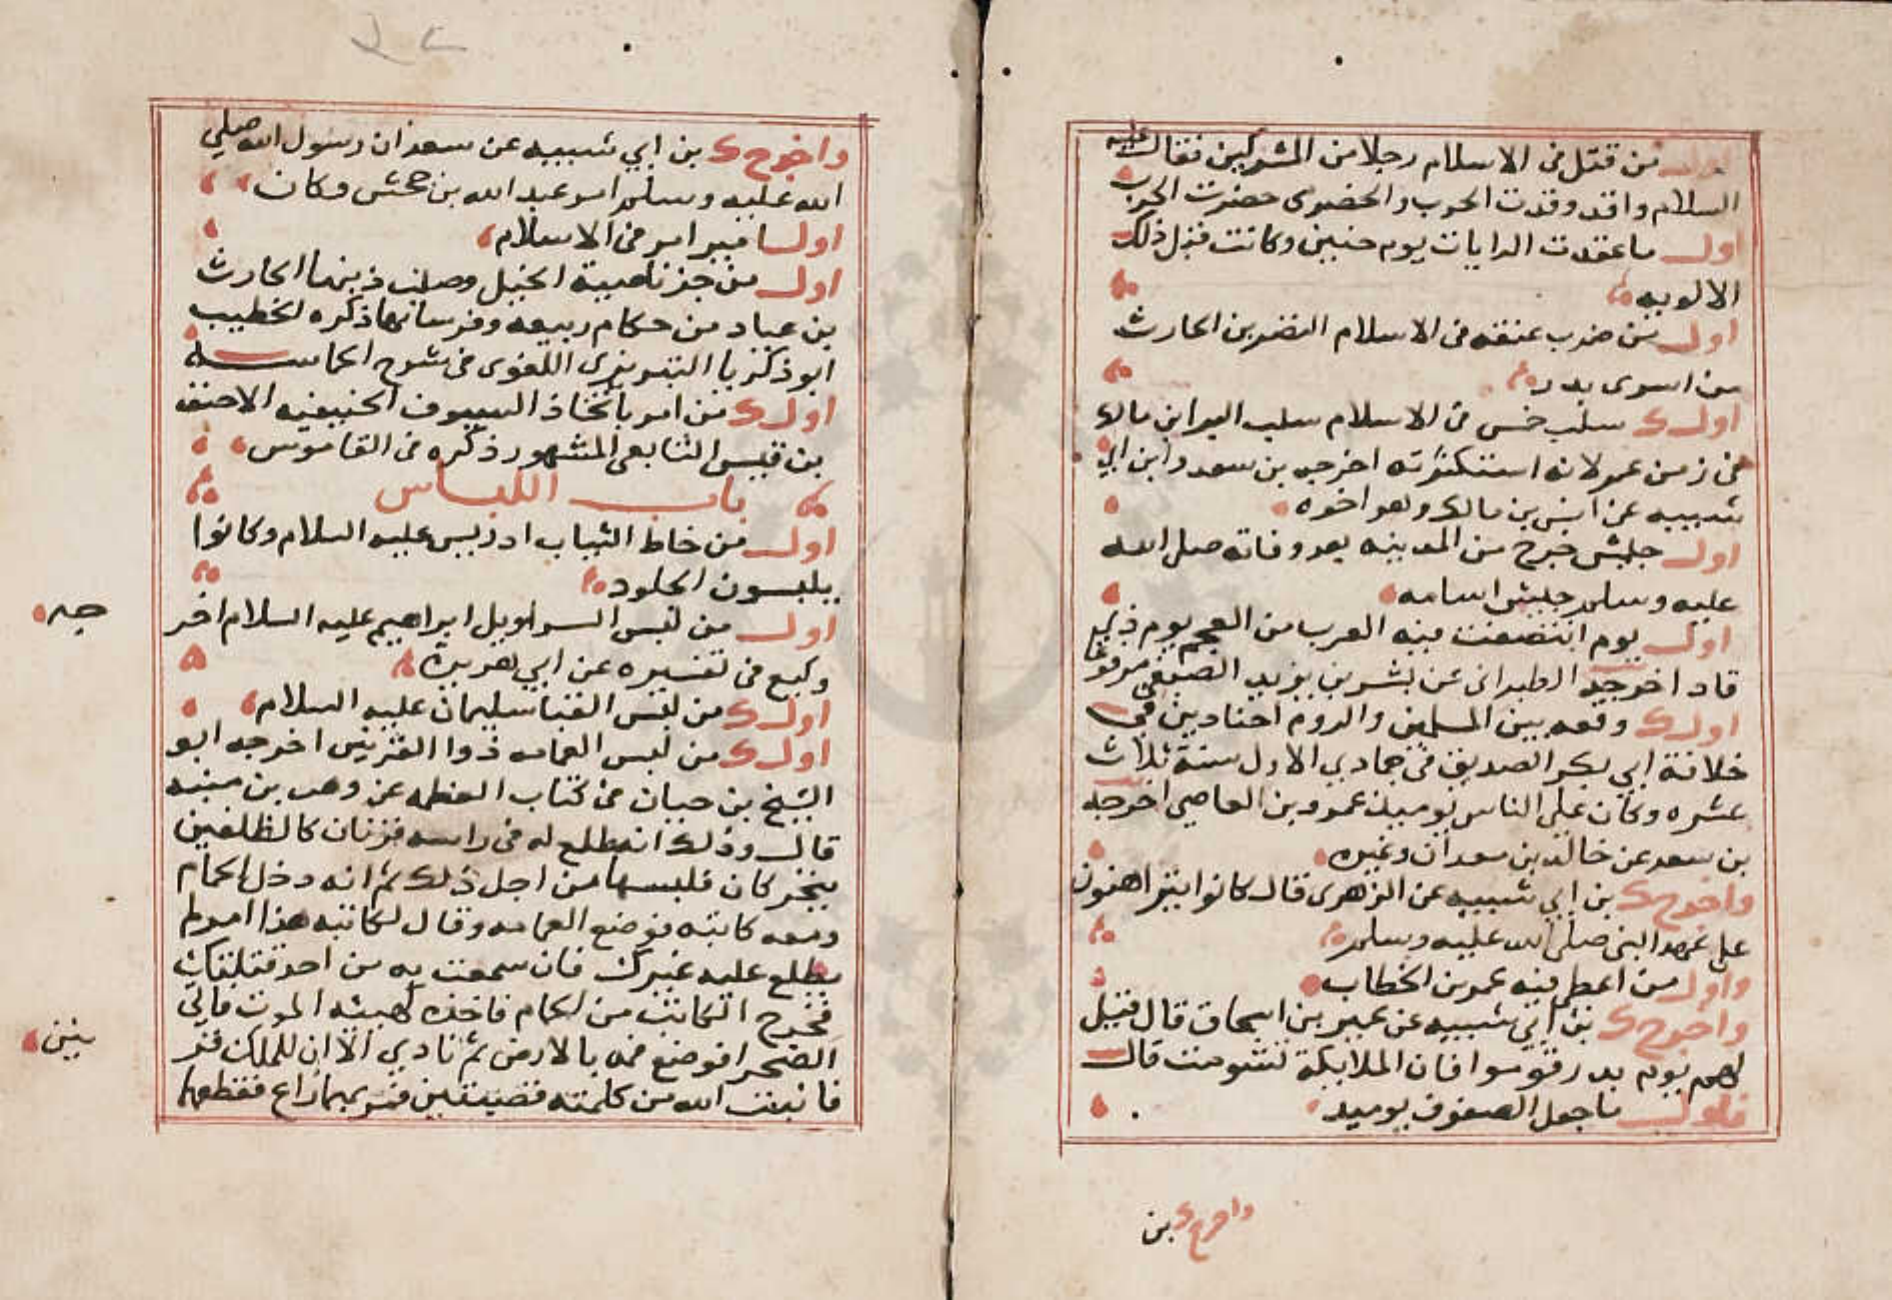 اول من قتل في الاسلام رجلا من المشركين فقال عليه
السلام واقد وقدت الحرب والحضرمى حضرت الحرب
اول ما عقدت الرايات يوم حنين وكانت قبل ذلك
الالويه
اول من ضرب عنقه في الاسلام النضر بن الحارث
من اسرى بدر
اول ك سلب خمس في الاسلام سلب البرا بن مالك
في زمن عمر لانه استكثرته اخرجه بن سعد وابن ابي
شيبيه عن انس بن مالك وهو اخوه
اول جيش خرج من المدينه بعد وفاته صلى الله
عليه وسلم جيش اسامه
اول يوم انتصفت فيه العرب من العجم يوم ذي
قاد اخرجه الطبراني عن بشر بن يزيد الضبعي مرفوعا
اول ك وقعه بين المسلمين والروم اجنادين في
خلافة ابي بكر الصديق في جمادي الاول سنة ثلاث
عشره وكان على الناس يوميذ عمرو بن العاصي اخرجه
بن سعد عن خالد بن معدان وغيره
واخرج ك بن ابي شيبيه عن الزهرى قال كانوا يتراهنون
على عهد النبى صلى الله عليه وسلم
واول من اعطى فيه عمر بن الخطاب
واخرج ك بن ابي شيبيه عن عمير بن اسحاق قال قيل
لهم يوم بدر تسوموا فان الملايكة تسومت قال
فاول ما جعل الصوف يوميد
واخرج ك بن
واخرج ك بن ابي شيبيه عن سعد ان رسول الله صلي
الله عليه وسلم امر عبد الله بن جحش وكان
اول امير امر في الاسلام
اول من جز ناصية الخيل وصلب ذنبها الحارث
بن عباد من حكام ربيعه وفرسانها ذكره الخطيب
ابو ذكريا التبريزى اللغوى في شرح الحماسه
اول ك من امر باتخاذ السيوف الحنيفيه الاحنف
بن قيس التابعى المشهور ذكره في القاموس
باب اللباس
اول من خاط الثياب ادريس عليه السلام وكانوا
يلبسون الجلود
اول من لبس السراويل ابراهيم عليه السلام اخر
جه
وكيع في تفسيره عن ابي هريرة
اول ك من لبس القبا سليمان عليه السلام
اول ك من لبس العمامه ذوا القرنين اخرجه ابو
الشيخ بن حبان في كتاب العظمه عن وهب بن منبه
قال وذلك انه طلع له في راسه قرنان كالظلفين
يتحركان فلبسها من اجل ذلك ثم انه دخل الحمام
ومعه كاتبه فوضع العمامه وقال لكاتبه هذا امر لم
يطلع عليه غيرك فان سمعت به من احد قتلتك
فخرج الكاتب من الحمام فاخذه كهيئه الموت فاتي
الصحرا فوضع فمه بالارض ثم نادي الا ان للملك قر
نين
فانبت الله من كلمته قصبتين فمر بهما راع فقطعها